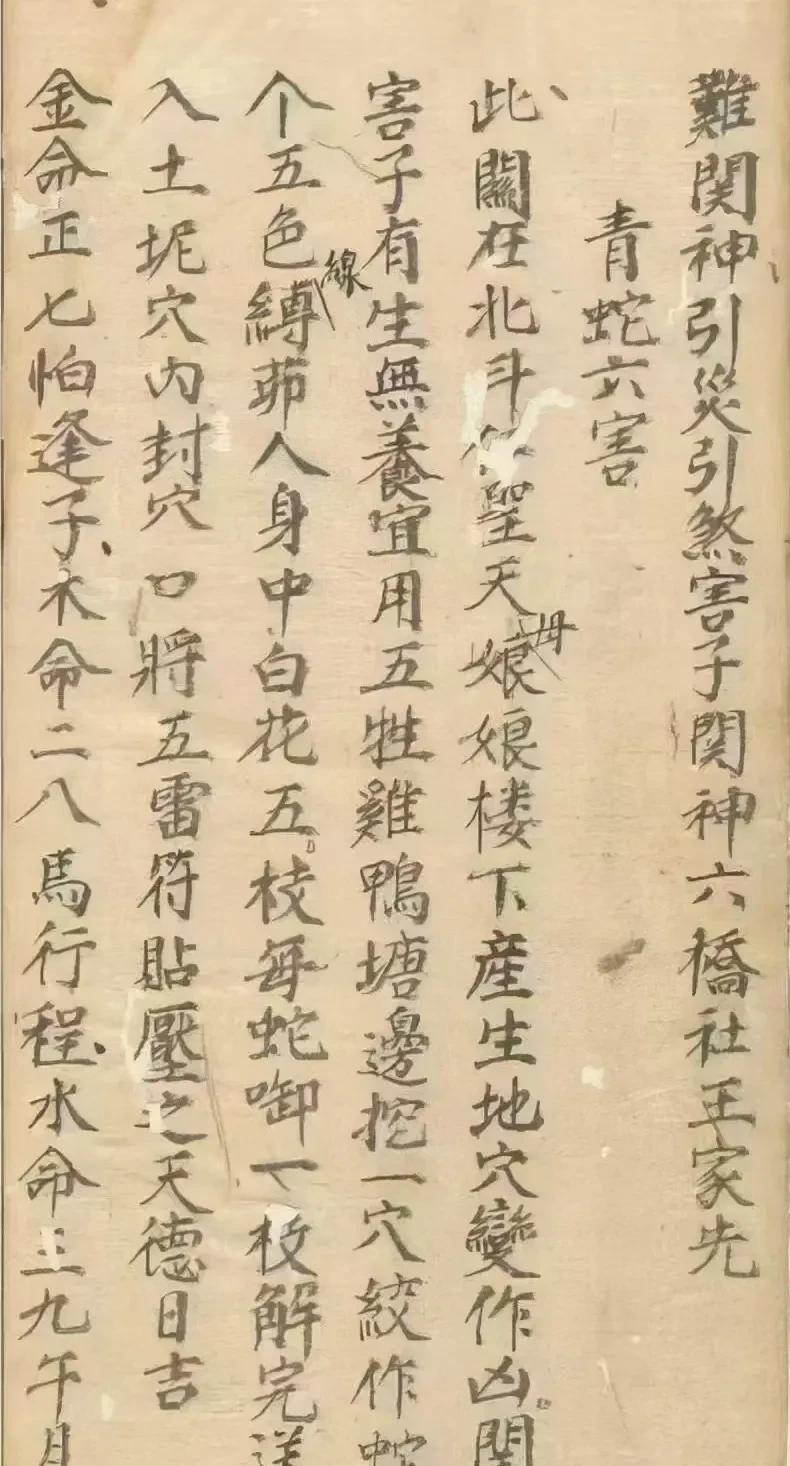 難関神引災引煞害子関神六橋社王家先
青蛇六害
此關在北斗聖天母娘樓下産生地穴變作凶関
害子有生無養宜用五牲雞鴨塘邊挖一穴絞作蛇
个五色線縛茆人身中白花五枝每蛇啣一枝解完送
入土坭穴内封穴口將五雷符貼壓之天德日吉
金命正七怕逢子木命二八馬行程水命三九午月